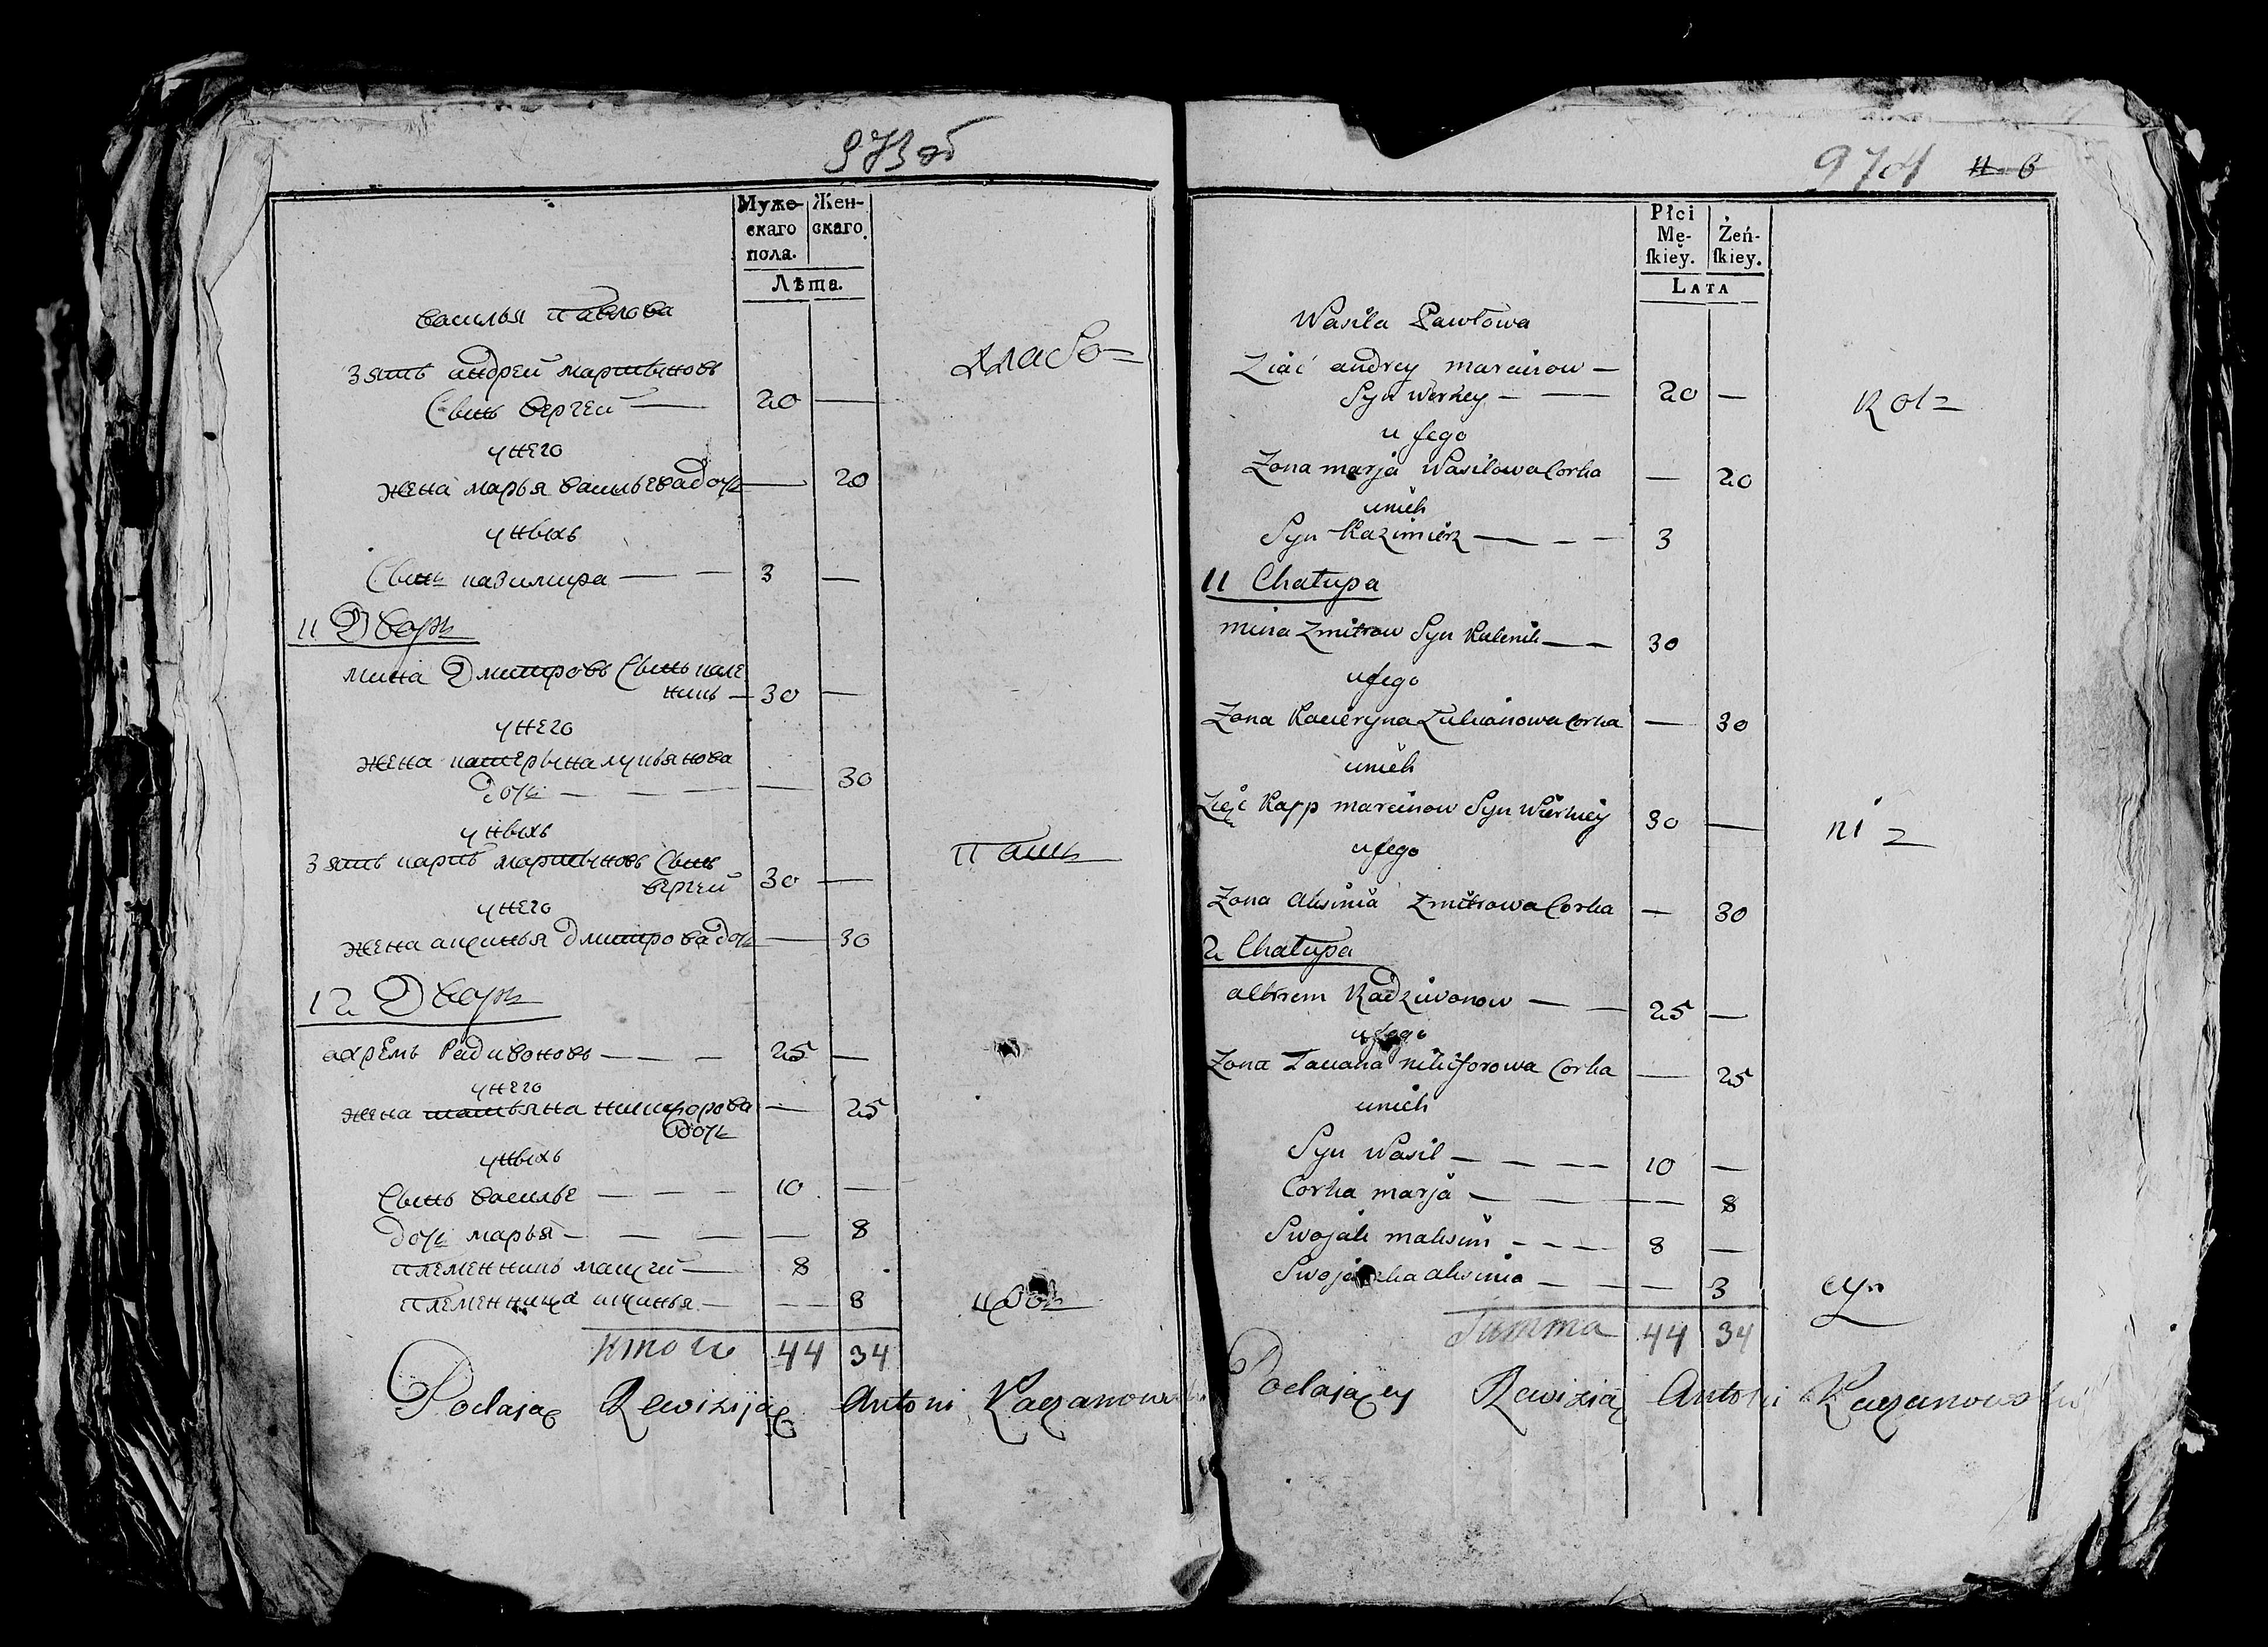 973 об
Муже-
скаго
пола.
Жен-
скаго.
Лѣта.
василья павлова
зять андрей мартыновъ
Сынъ вергей — 20 —
унего
жена марья васильева дочь — 20
уныхъ
Сынъ казимира — — 3 —
11 Дворъ
мина Дмитровъ Сынъ кале
никъ — 30 —
унего
жена катерына лукьянова
дочь — — — — 30
уныхъ
зять карпъ мартыновъ Сынъ
вергей 30 —
унего
жена аксинья дмитрова дочь — 30
12 Дворъ
ахремъ Радивоновъ — — — 25 —
унего
жена татьяна никифорова — 25
дочь
уныхъ
Сынъ василье — — — 10 —
дочь марья — — — — 8
племенникъ максей — 8
племенница аксинья — — 8
итого 44 34
Podaiąc Rewiziją Antoni Kaczanowski
974 11-6
Płci
Mę-
skiey.
Żeń-
skiey.
LATA
Wasila Pawłowa
Ziać andrey marcinow —
Syn Werhey — — 20 —
u jego
Zona marja Wasilowa Corka — 20
unich
Syn Kazimierz — — — 3
11 Chałupa
mina Zmitrow Syn Kalenik — — 30
ujego
Zona Kacieryna Łukianowa Corka — 30
unich
Zięć Karp marcinow Syn Wierhiey 30 —
ujego
Zona aksinia Zmitrowa Corka — 30
2 Chałupa
achrem Radziwonow — — 25 —
ujego
Zona Taciana nikiforowa Corka — 25
unich
Syn Wasil — — — — 10 —
Corka marja — — — 8
Swojak maksim — — — — 8 —
Swojaczka aksinia — — 3
Summa 44 34
Podaiący Rewizią Antoni Kaczanowski